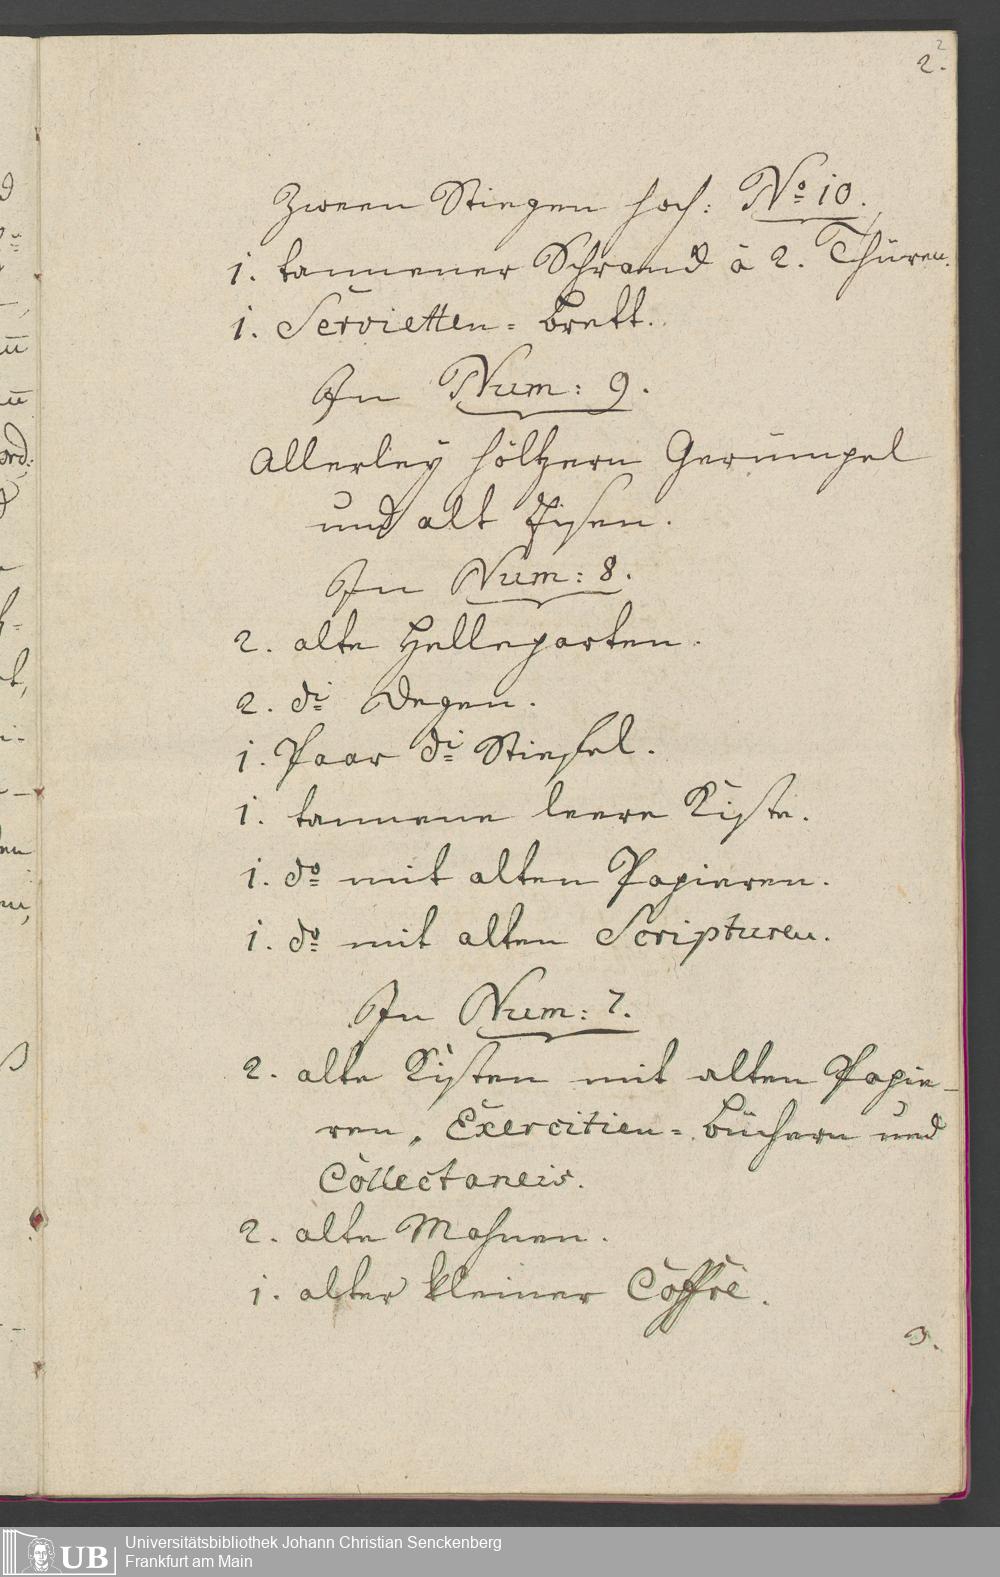 2
2.
Zween Stiegen hoch: No 10.
1. tannener Schranck à 2. Thüren.
1. Servietten= Brett.
In Num: 9.
Allerley höltzern Gerümpel
und alt Eisen.
In Num: 8.
2. alte Helleparten.
2. di Degen.
1. Paar di Stiefel.
1. tannene leere Kiste.
1. do mit alten Papieren.
1. do mit alten Scripturen.
In Num: 7.
2. alte Kisten mit alten Papie-
ren, Exercitien= Büchern und
Collectaneis.
2. alte Mahnen.
1. alter kleiner Coffre.
3.
UB
Universitätsbibliothek Johann Christian Senckenberg
Frankfurt am Main